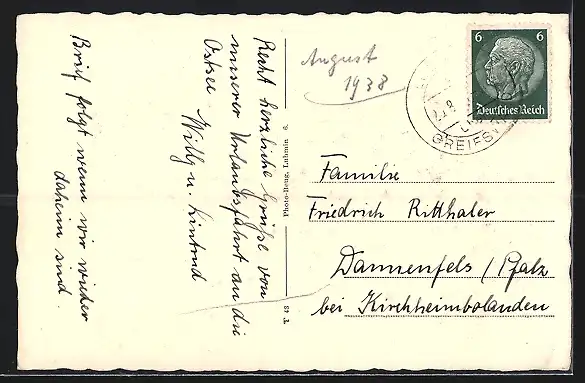 Recht herzliche Grüße von
unserer Urlaubsfahrt an die
Ostsee Willy u.
Brief folgt wenn wir wieder
daheim sind
Photo-Beug, Lubmin 6.
T. 48
August
1938
6 6
Deutsches Reich
GREIFSW
Familie
Friedrich Ritthaler
Dannenfels / Pfalz
bei Kirchheimbolanden